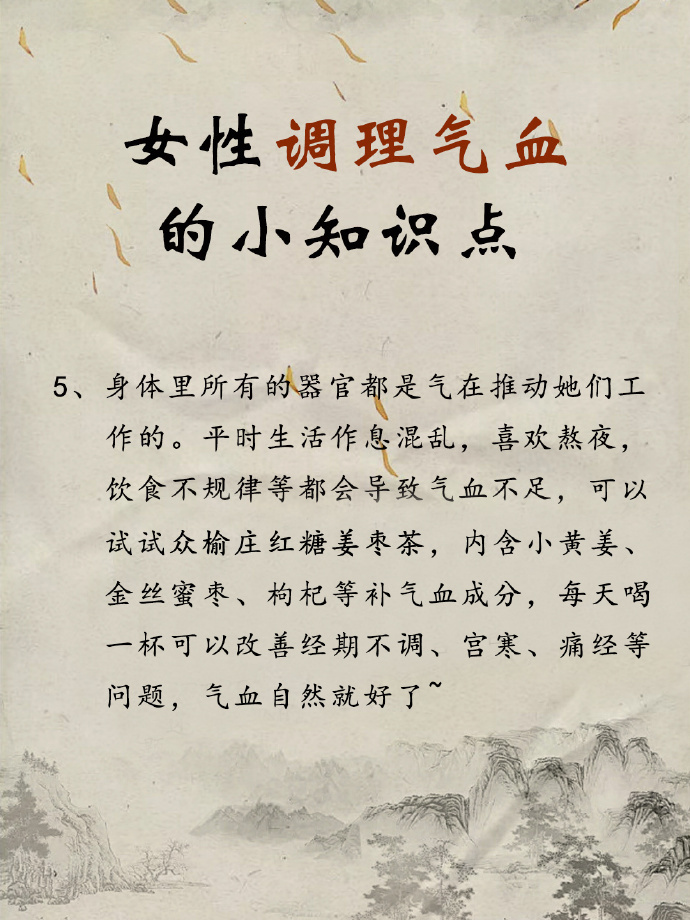 女性调理气血
的小知识点
5、身体里所有的器官都是气在推动她们工
作的。平时生活作息混乱，喜欢熬夜，
饮食不规律等都会导致气血不足，可以
试试众榆庄红糖姜枣茶，内含小黄姜、
金丝蜜枣、枸杞等补气血成分，每天喝
一杯可以改善经期不调、宫寒、痛经等
问题，气血自然就好了~